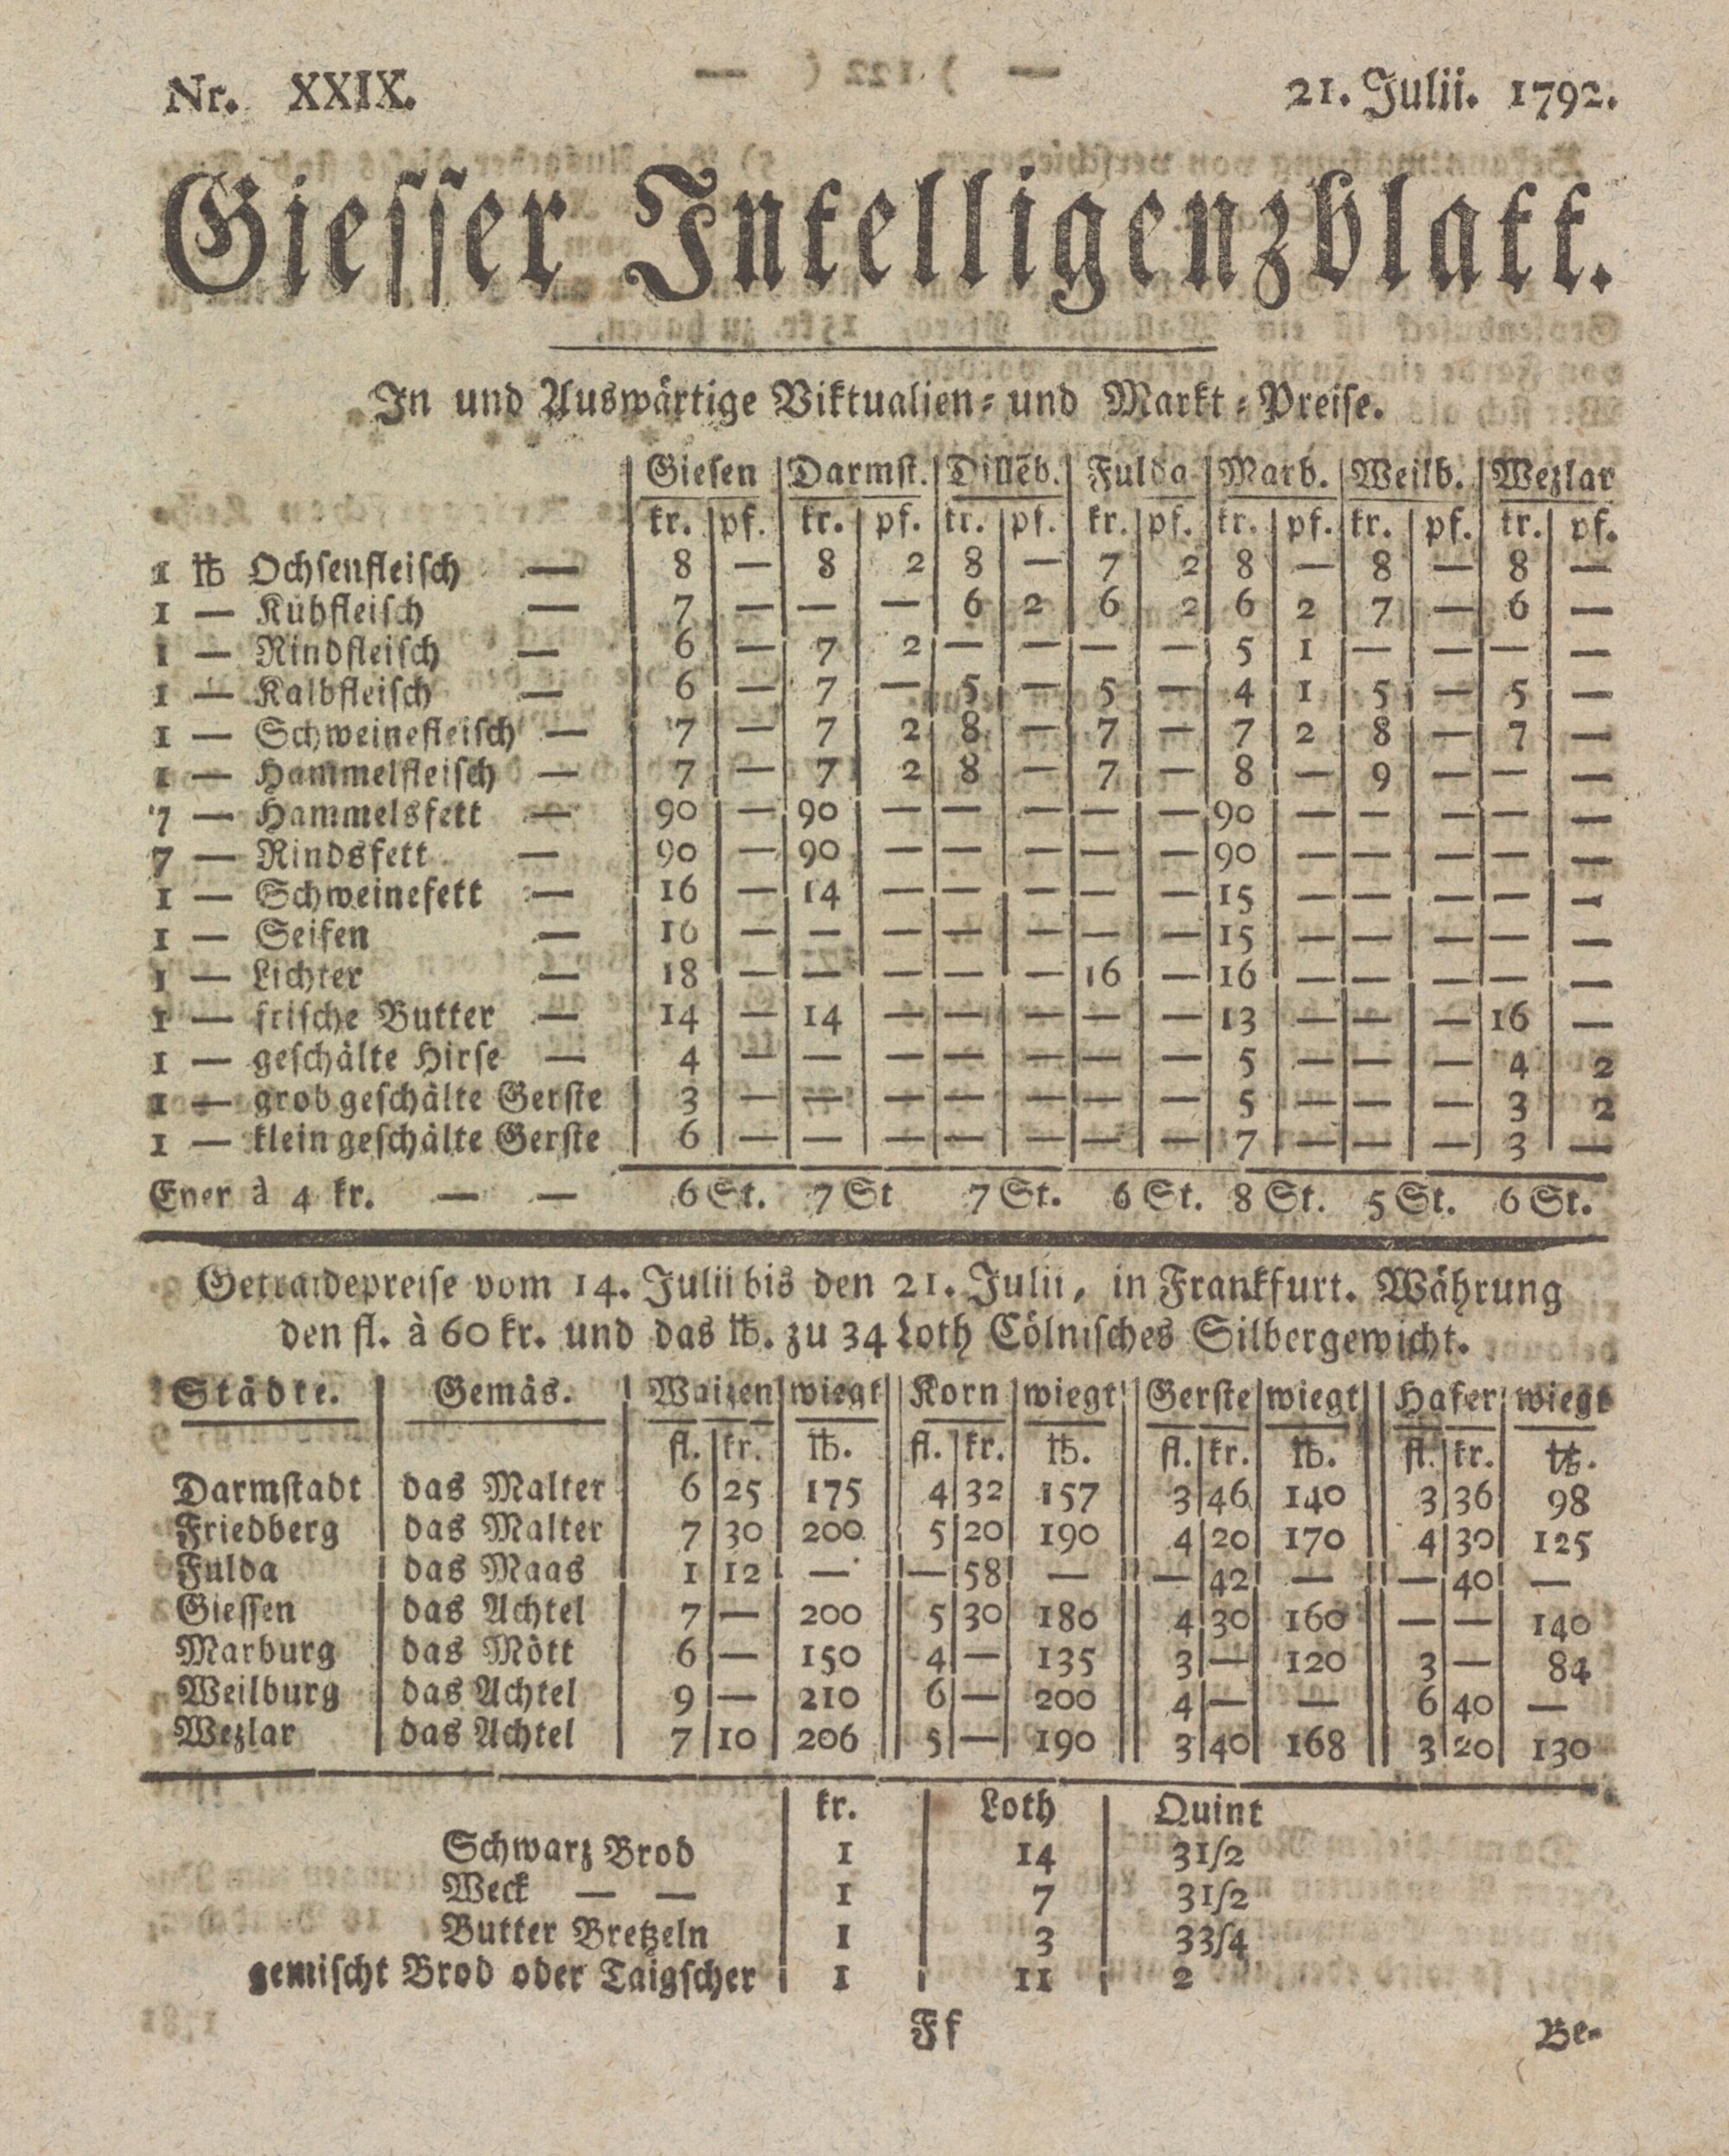 Nr. XXIX.
21. Julii. 1792.
Giesser Intelligenzblatt.
In und Auswärtige Viktualien- und Markt-Preise.
Giesen | Darmst. | Dillēb. | Fulda | Marb. | Weilb. | Wezlar
kr. | pf. | kr. | pf. | kr. | pf. | kr. | pf. | kr. | pf. | kr. | pf. | kr. | pf.
1 ℔ Ochsenfleisch — 8 | — | 8 | 2 | 8 | — | 7 | 2 | 8 | — | 8 | — | 8 | —
1 — Kühfleisch — 7 | — | — | — | 6 | 2 | 6 | 2 | 6 | 2 | 7 | — | 6 | —
1 — Rindfleisch — 6 | — | 7 | 2 | — | — | — | — | 5 | 1 | — | — | — | —
1 — Kalbfleisch — 6 | — | 7 | — | 5 | — | 5 | — | 4 | 1 | 5 | — | 5 | —
1 — Schweinefleisch — 7 | — | 7 | 2 | 8 | — | 7 | — | 7 | 2 | 8 | — | 7 | —
1 — Hammelfleisch — 7 | — | 7 | 2 | 8 | — | 7 | — | 8 | — | 9 | — | — | —
7 — Hammelsfett — 90 | — | 90 | — | — | — | — | — | 90 | — | — | — | — | —
7 — Rindsfett — 90 | — | 90 | — | — | — | — | — | 90 | — | — | — | — | —
1 — Schweinefett — 16 | — | 14 | — | — | — | — | — | 15 | — | — | — | — | —
1 — Seifen — 16 | — | — | — | — | — | — | — | 15 | — | — | — | — | —
1 — Lichter — 18 | — | — | — | — | — | 16 | — | 16 | — | — | — | — | —
1 — frische Butter — 14 | — | 14 | — | — | — | — | — | 13 | — | — | — | 16 | —
1 — geschälte Hirse — 4 | — | — | — | — | — | — | — | 5 | — | — | — | 4 | 2
1 — grob geschälte Gerste 3 | — | — | — | — | — | — | — | 5 | — | — | — | 3 | 2
1 — klein geschälte Gerste 6 | — | — | — | — | — | — | — | 7 | — | — | — | 3 | —
Eyer à 4 kr. — — 6 St. 7 St 7 St. 6 St. 8 St. 5 St. 6 St.
Getraidepreise vom 14. Julii bis den 21. Julii, in Frankfurt. Währung
den fl. à 60 kr. und das ℔. zu 34 Loth Cölnisches Silbergewicht.
Städte. | Gemäs. | Waizen | wiegt | Korn | wiegt | Gerste | wiegt | Hafer | wiegt
fl. | kr. | ℔. | fl. | kr. | ℔. | fl. | kr. | ℔. | fl. | kr. | ℔.
Darmstadt | das Malter | 6 | 25 | 175 | 4 | 32 | 157 | 3 | 46 | 140 | 3 | 36 | 98
Friedberg | das Malter | 7 | 30 | 200 | 5 | 20 | 190 | 4 | 20 | 170 | 4 | 30 | 125
Fulda | das Maas | 1 | 12 | — | — | 58 | — | — | 42 | — | — | 40 | —
Giessen | das Achtel | 7 | — | 200 | 5 | 30 | 180 | 4 | 30 | 160 | — | — | 140
Marburg | das Mött | 6 | — | 150 | 4 | — | 135 | 3 | — | 120 | 3 | — | 84
Weilburg | das Achtel | 9 | — | 210 | 6 | — | 200 | 4 | — | — | 6 | 40 | —
Wezlar | das Achtel | 7 | 10 | 206 | 5 | — | 190 | 3 | 40 | 168 | 3 | 20 | 130
kr. | Loth | Quint
Schwarz Brod | 1 | 14 | 3 1/2
Weck — — | 1 | 7 | 3 1/2
Butter Bretzeln | 1 | 3 | 3 3/4
gemischt Brod oder Taigscher | 1 | 11 | 2
Ff
Be-